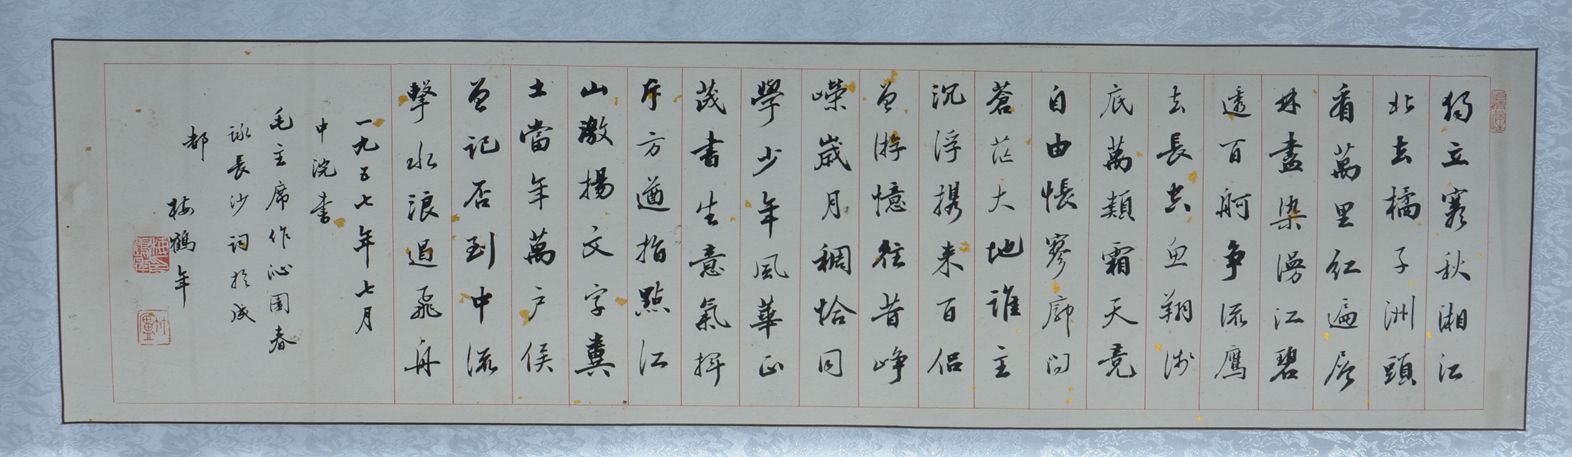 獨立寒秋湘江
北去橘子洲頭
看萬里红遍层
林盡染漫江碧
透百舸争流鷹
击長空鱼翔浅
底萬類霜天竞
自由悵寥廓问
蒼茫大地誰主
沉浮携来百侣
曾游憶往昔峥
嶸嵗月稠恰同
學少年風華正
茂書生意氣挥
斥方遒指點江
山激揚文字糞
土當年萬户侯
曾记否到中流
擊水浪遏飛舟
一九五七年七月
中浣書
毛主席作沁園春
詠長沙词於成
都
梅鶴年